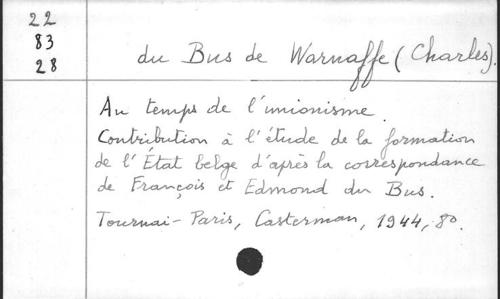 22
83
28
du Bus de Warnaffe (Charles).
Au temps de l'unionisme.
Contribution à l'étude de la formation
de l'État belge d'après la correspondance
de François et Edmond du Bus.
Tournai-Paris, Casterman, 1944, 8o.